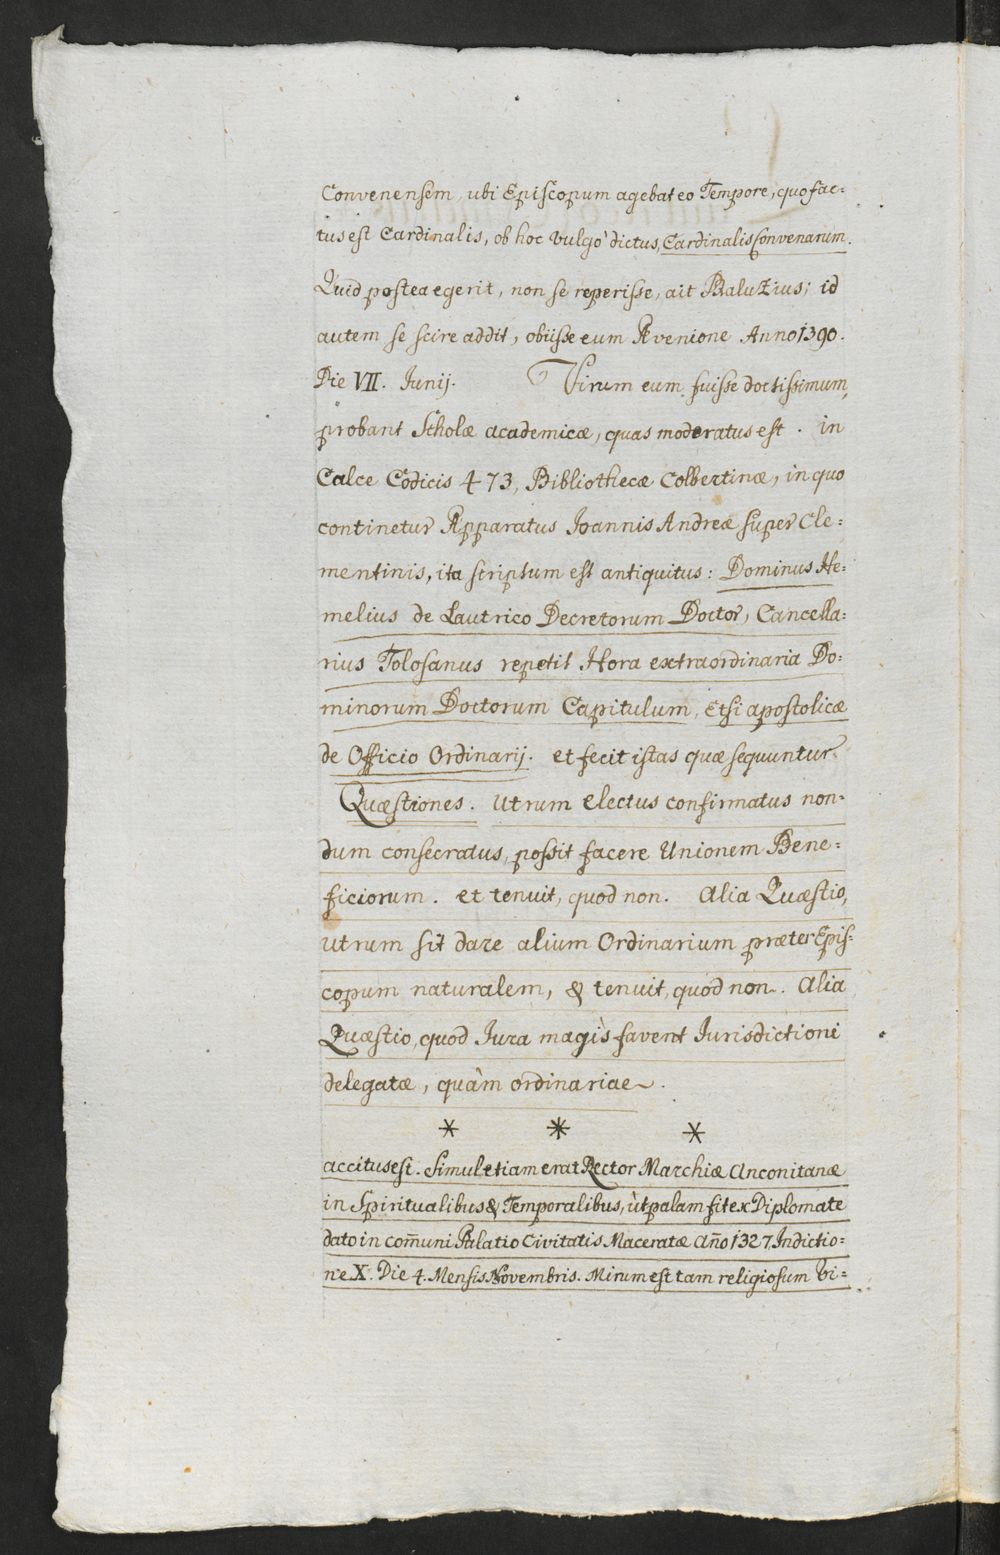 Convenensem, ubi Episcopum agebat eo Tempore, quo fac=
tus est Cardinalis, ob hoc vulgò dictus, Cardinalis Convenarum.
Quid postea egerit, non se reperisse, ait Baluzius; id
autem se scire addit, obiisse eum Avenione Anno 1390.
Die VII. Junij. Virum eum fuisse doctissimum,
probant Scholæ academicæ, quas moderatus est. in
Calce Codicis 473, Bibliothecæ Colbertinæ, in quo
continetur Apparatus Joannis Andreæ super Cle=
mentinis, ita scriptum est antiquitus: Dominus He=
melius de Lautrico Decretorum Doctor, Cancella=
rius Tolosanus repetit Hora extraordinaria Do=
minorum Doctorum Capitulum, Etsi apostolicæ
de Officio Ordinarij. et fecit istas quæ sequuntur
Quæstiones. Utrum electus confirmatus non=
dum consecratus, possit facere Unionem Bene=
ficiorum. et tenuit, quod non. Alia Quæstio,
utrum sit dare alium Ordinarium præter Epis=
copum naturalem, & tenuit, quod non. Alia
Quæstio, quod Jura magis favent Jurisdictioni
delegatæ, quàm ordinariae.
* * *
accitus est. Simul etiam erat Rector Marchiæ Anconitanæ
in Spiritualibus & Temporalibus, ùt palam fit ex Diplomate
dato in com̃uni Palatio Civitatis Maceratæ Año 1327. Indictio=
ne X. Die 4. Mensis Novembris. Mirum est tam religiosum Vi=